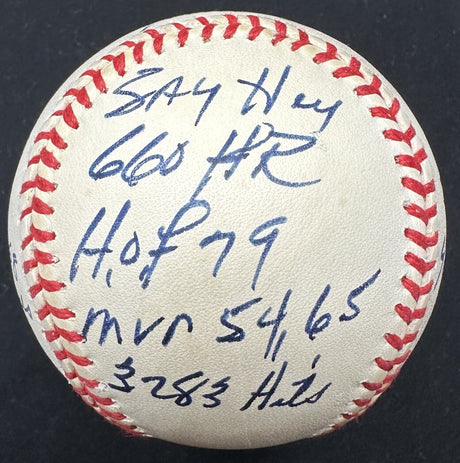 SAY Hey
660 HR
H.O.F 79
MVP 54, 65
3283 Hits